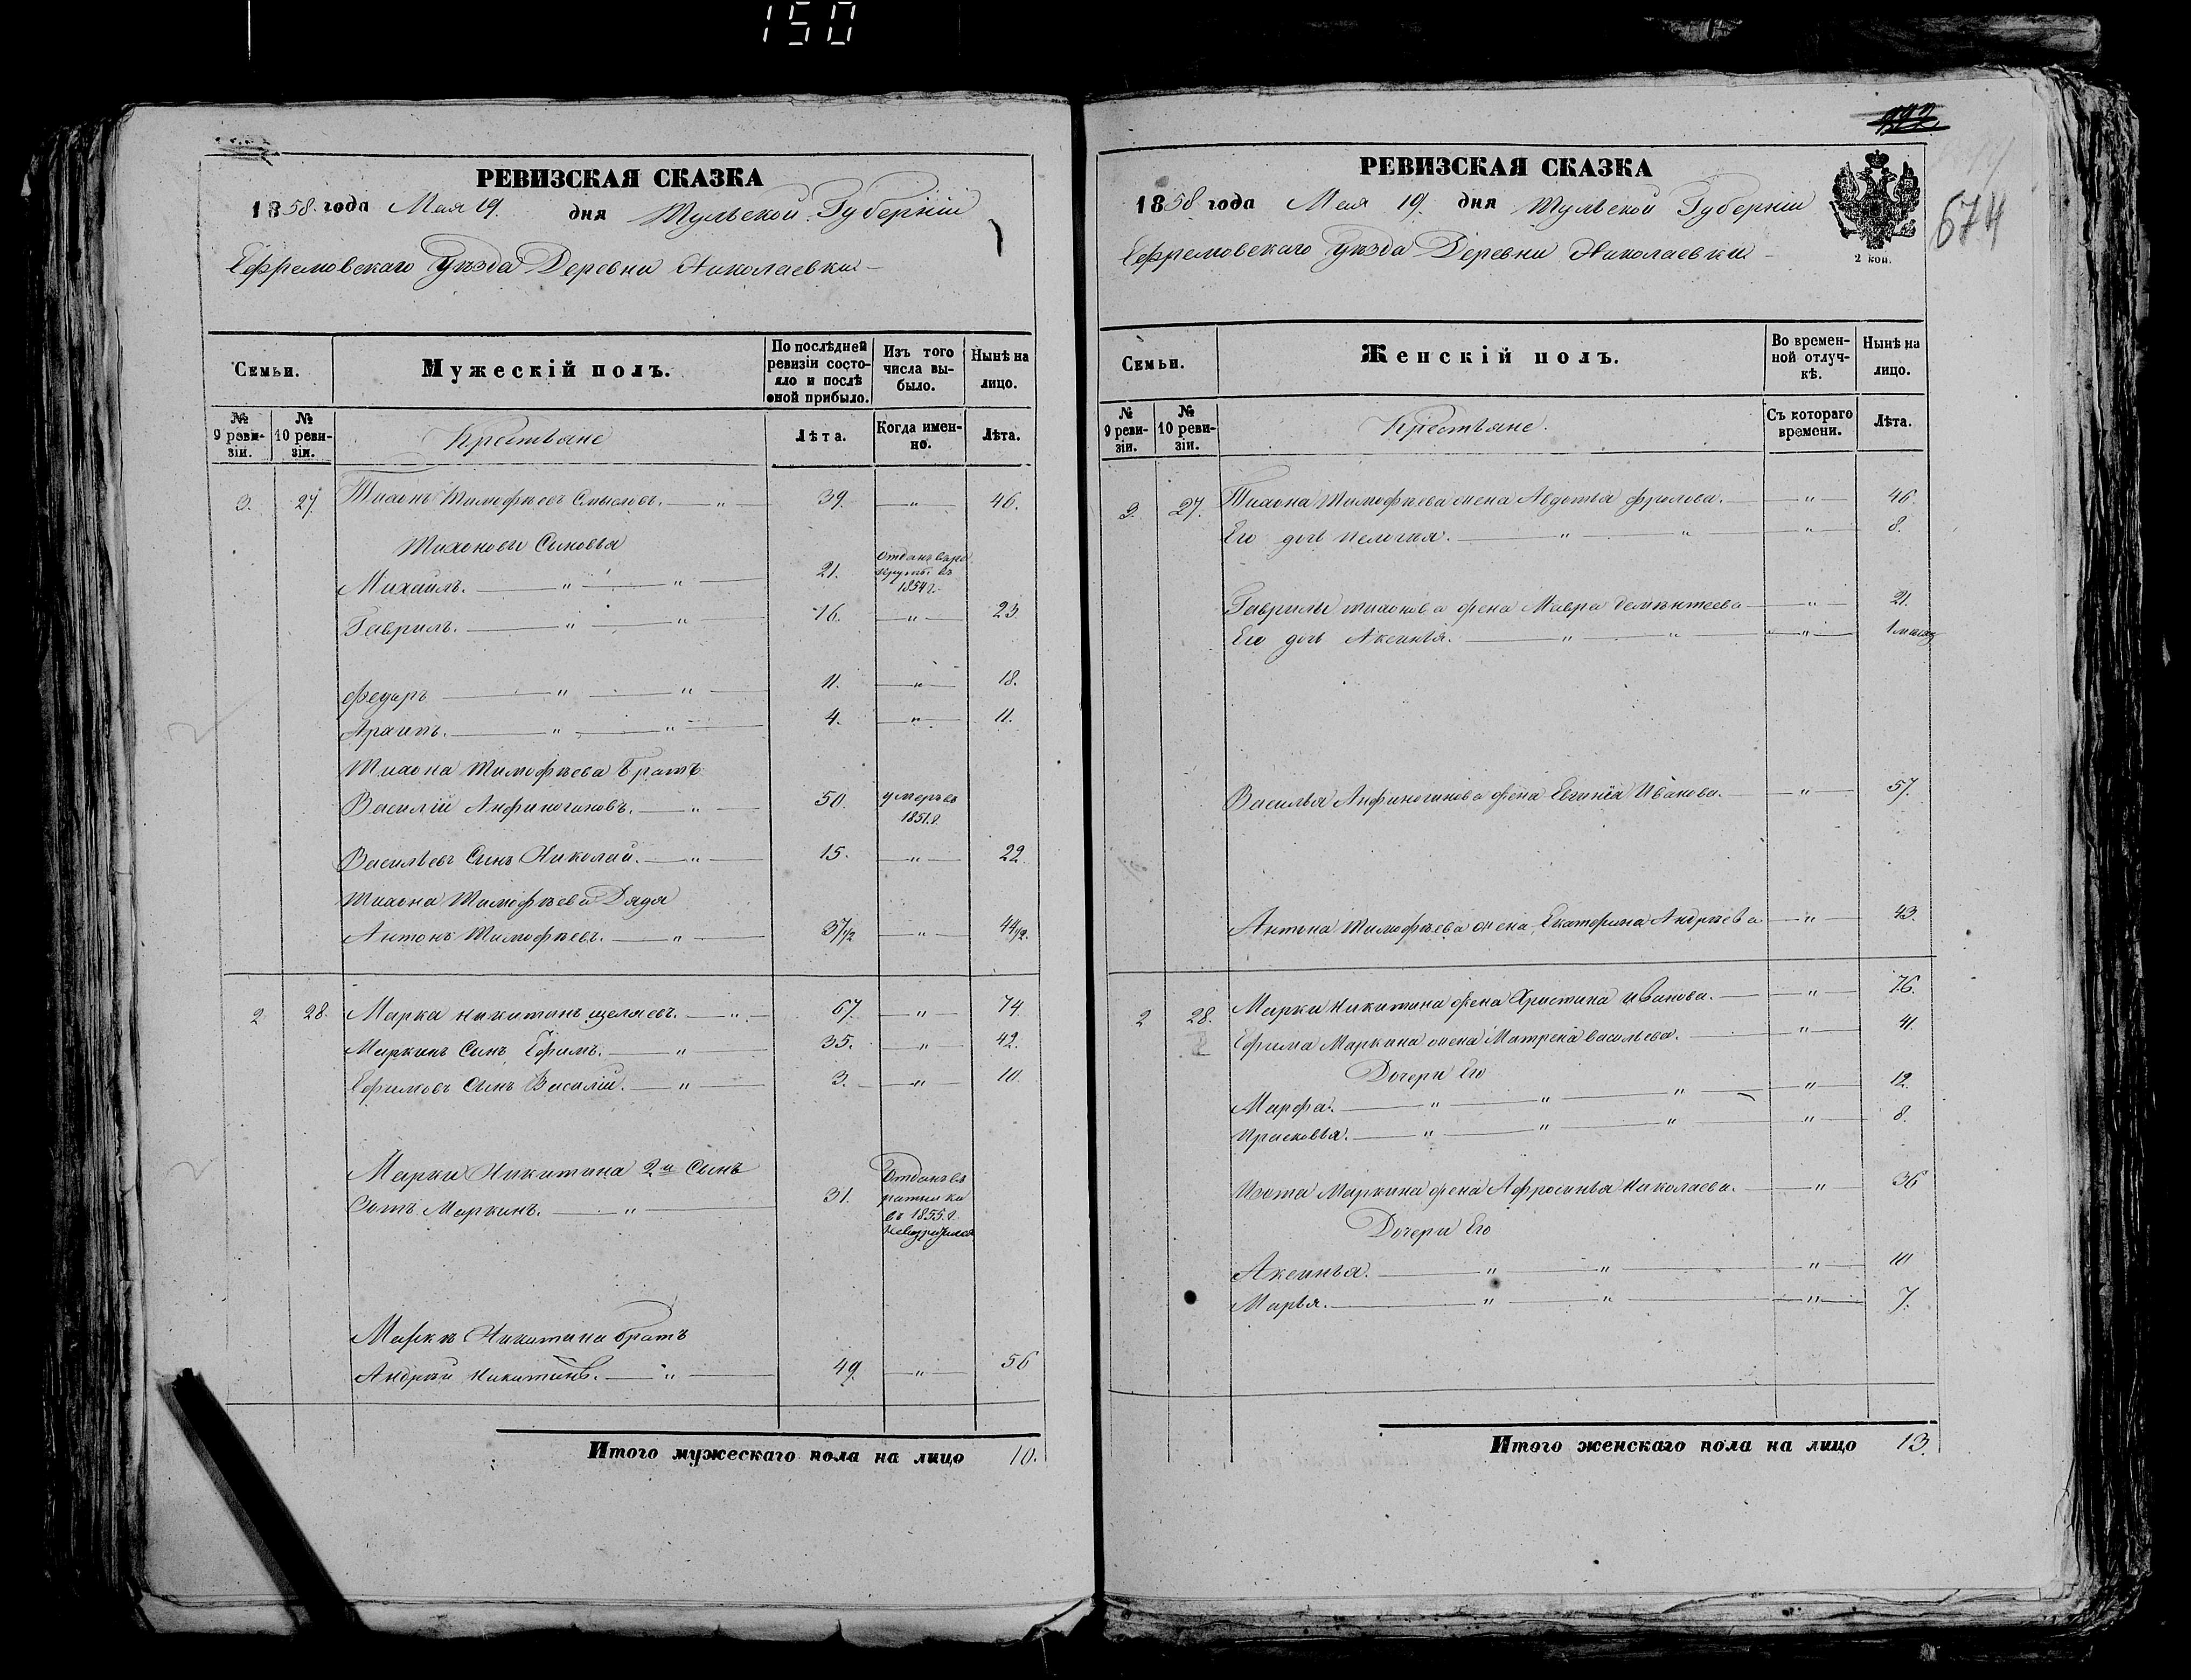 150
РЕВИЗСКАЯ СКАЗКА
1858 года Мая 19. дня Тульской Губерніи
Ефремовскаго Уѣзда Деревни Николаевки
Семьи.
Мужескій полъ.
По послѣдней ревизіи состояло и послѣ оной прибыло.
Изъ того числа выбыло.
Нынѣ на лицо.
№ 9 ревизіи.
№ 10 ревизіи.
Крестьяне
Лѣта.
Когда именно.
Лѣта.
3. 27 Тихонъ Тимофѣевъ Смысловъ. — " 39. — " — 46.
Тихоновы Сыновья
Михайлъ. — " — " — 21. Отданъ въ рекруты въ 1854 г.
Гаврилъ. — " — " — 16. — " — 23
Федаръ — " — " — 11. — " — 18.
Архипъ. — " — " — 4. — " — 11.
Тихона Тимофѣева Братъ
Василій Анфиногиновъ. — " — 50. умеръ въ 1851. г.
Васильевъ Сынъ Николай. — " — 15. — " — 22.
Тихона Тимофѣева Дядя
Антонъ Тимофѣевъ. — " — 37 1/2 — " — 44 1/2.
2 28. Марка никитинъ щеляевъ. — " — 67. — " — 74.
Маркинъ Сынъ Ефимъ. — " — 35. — " — 42.
Ефимовъ Сынъ Василій. — " — 3. — " — 10
Марки Никитина 2й Сынъ
Маркинъ. — " — 31. Отданъ въ ратники въ 1855. г.
Марки Никитина братъ
Андрей Никитинъ. — " — 49. — " — 56
Итого мужескаго пола на лицо 10.
674
РЕВИЗСКАЯ СКАЗКА
1858 года Мая 19. дня Тульской Губерніи
Ефремовскаго Уѣзда Деревни Николаевки
2 коп.
Семьи.
Женскій полъ.
Во временной отлучкѣ.
Нынѣ на лицо.
№ 9 ревизіи.
№ 10 ревизіи.
Крестьяне.
Съ котораго времени.
Лѣта.
3. 27. Тихона Тимофѣева жена Авдотья фролова. — " — 46.
Его дочь Пелогия. — " — " — " — 8.
Гаврилы тихонова жена Мавра дементеева — " — 21.
Его дочь Аксинья. — " — " — " — 1 месяц
Василья Анфиногинова жена Евгинія Иванова. — " — 57.
Антона Тимофѣева жена Екатерина Андрѣева — " — 43.
2 28. Марки Никитина жена Христина иванова. — " — 76.
Ефима Маркина жена Матрена васильева. — " — 41.
Дочери Его
Марфа. — " — " — " — " — 12.
Прасковья. — " — " — " — " — 8.
Изота Маркина жена Афросинья Николаева. — " — 36
Дочери Его
Аксинья. — " — " — " — 10
Марья. — " — " — " — 7.
Итого женскаго пола на лицо 13.